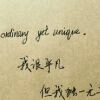 ordinary yet unique.
我很平凡
但我独一无